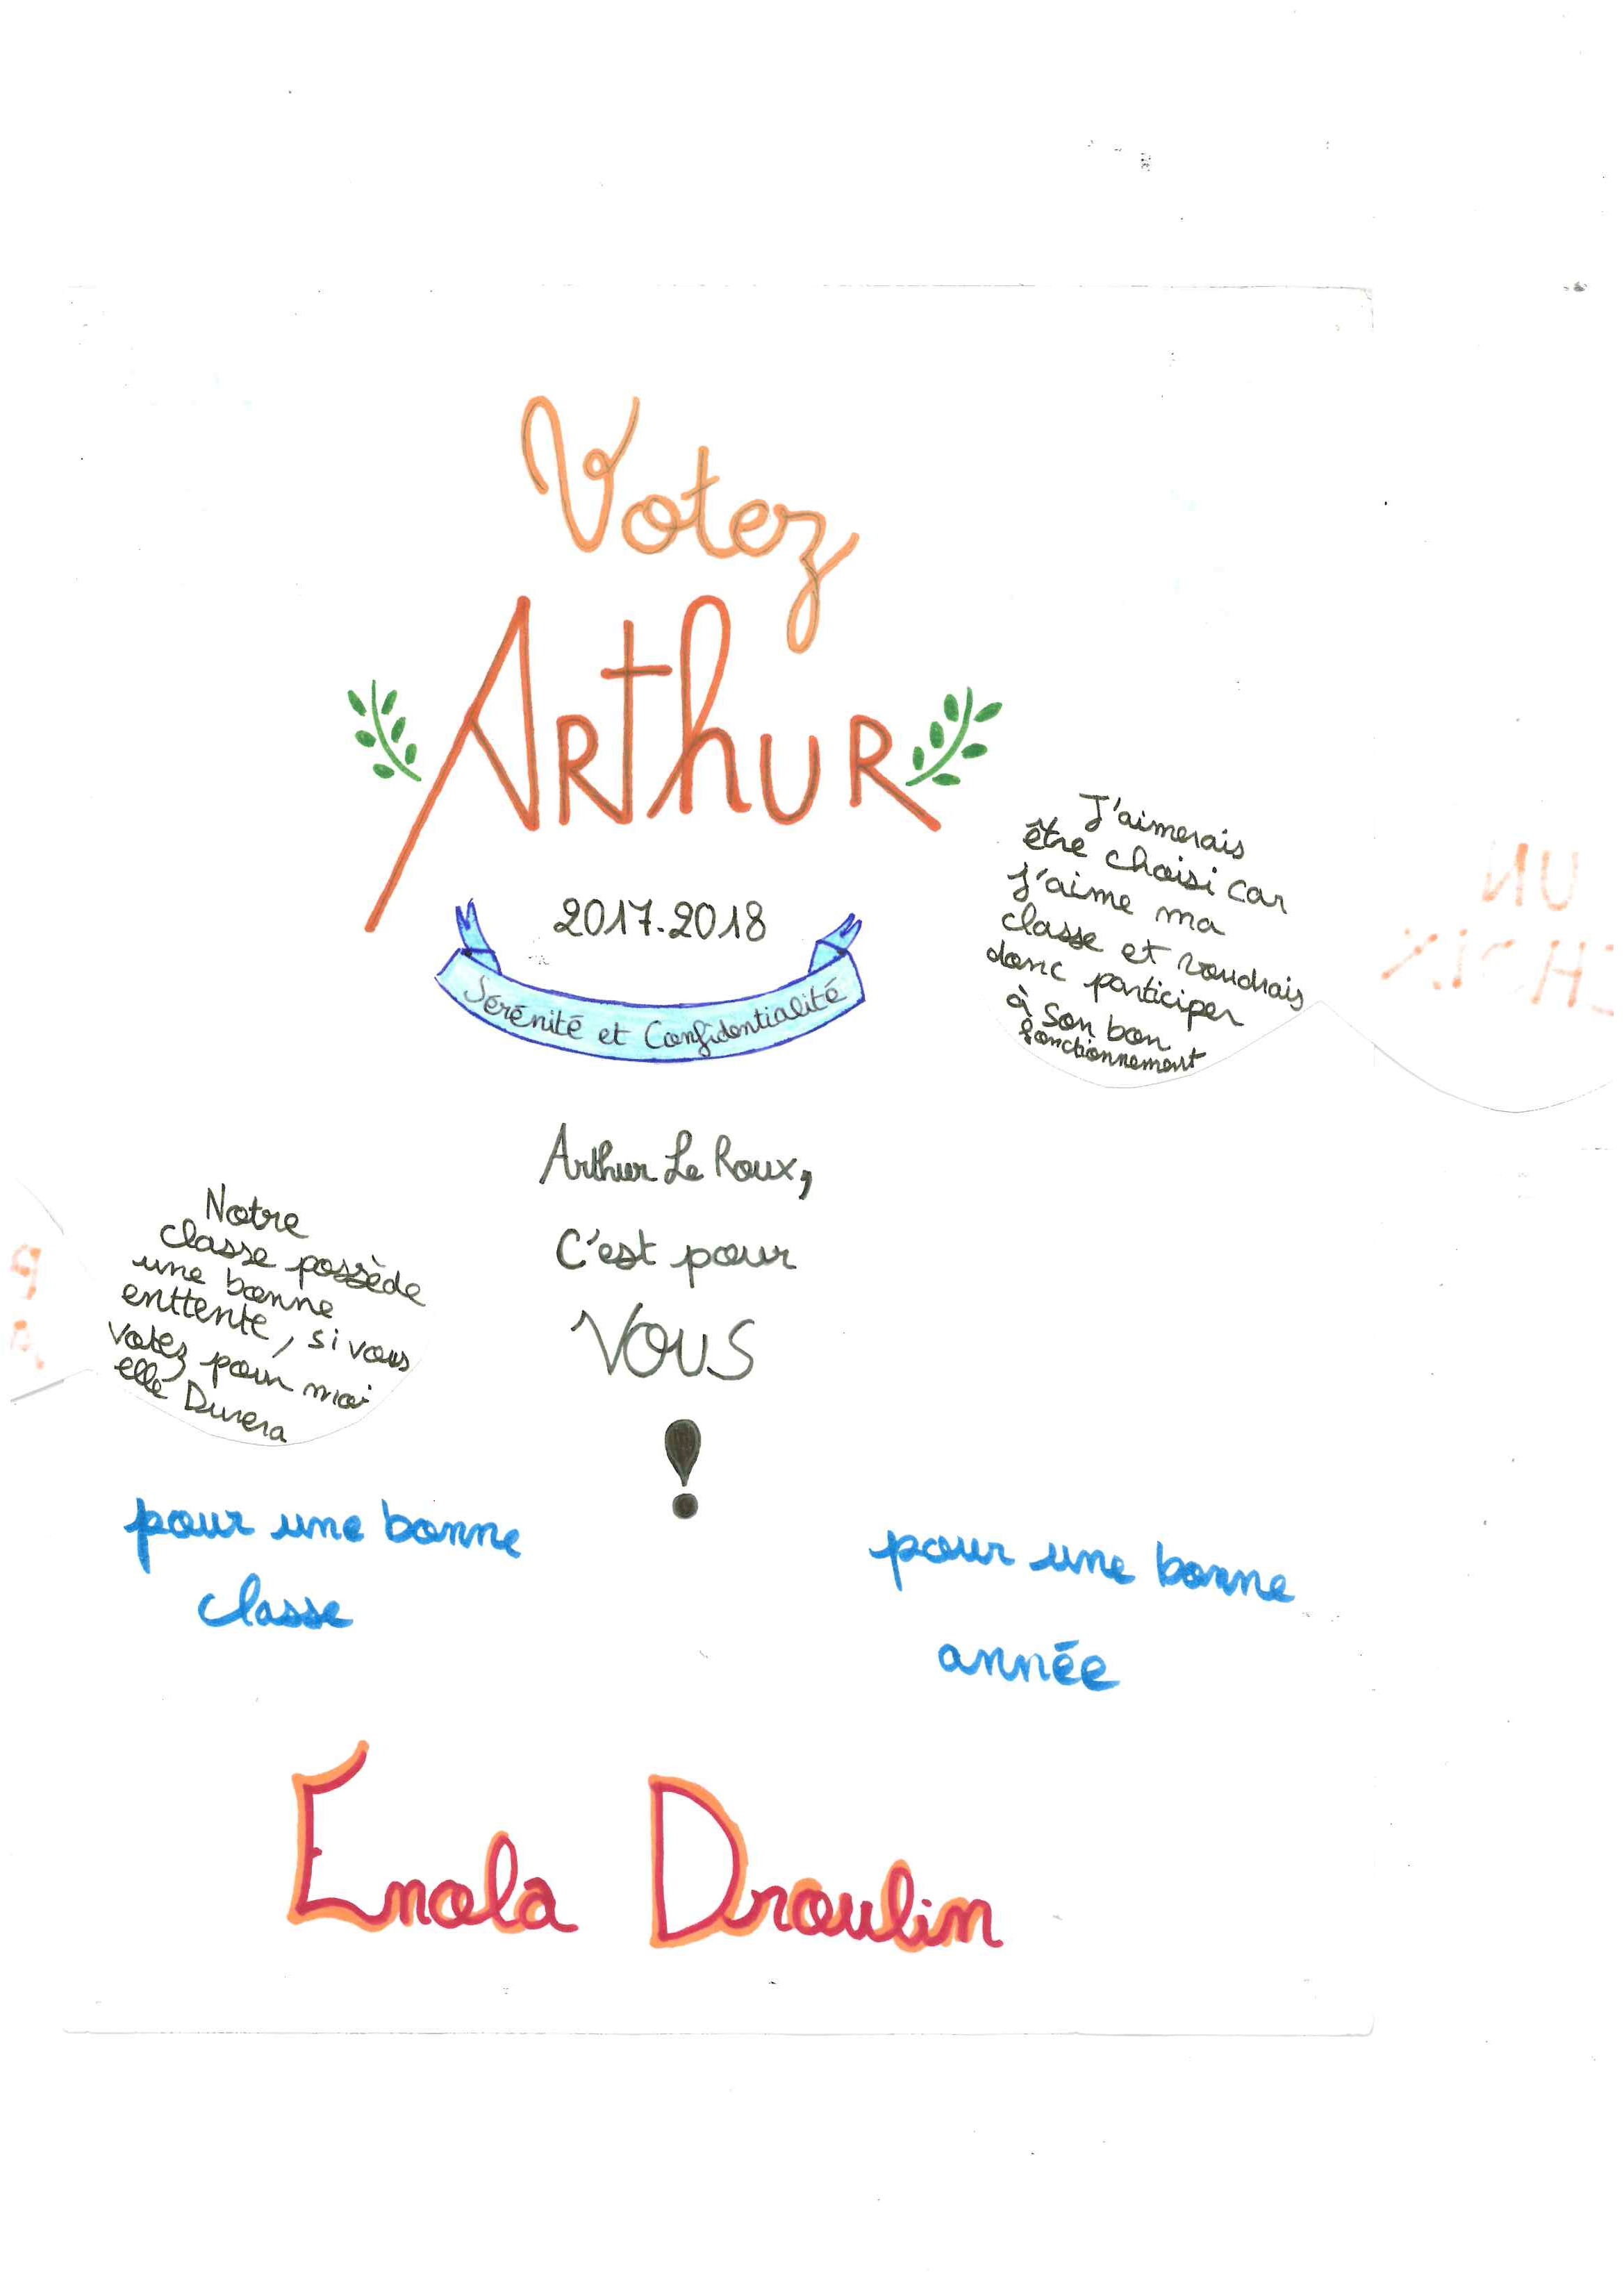 Votez
ARthUR
2017.2018
Sérénité et Confidentialité
J'aimerais
être choisi car
j'aime ma
classe et voudrais
donc participer
à son bon
fonctionnement
UN
CHOIX
Arthur Le Roux,
C'est pour
VOUS
!
Notre
classe possède
une bonne
enttente, si vous
votez pour moi
elle Durera
pour une bonne
classe
pour une bonne
année
Enola Droulin